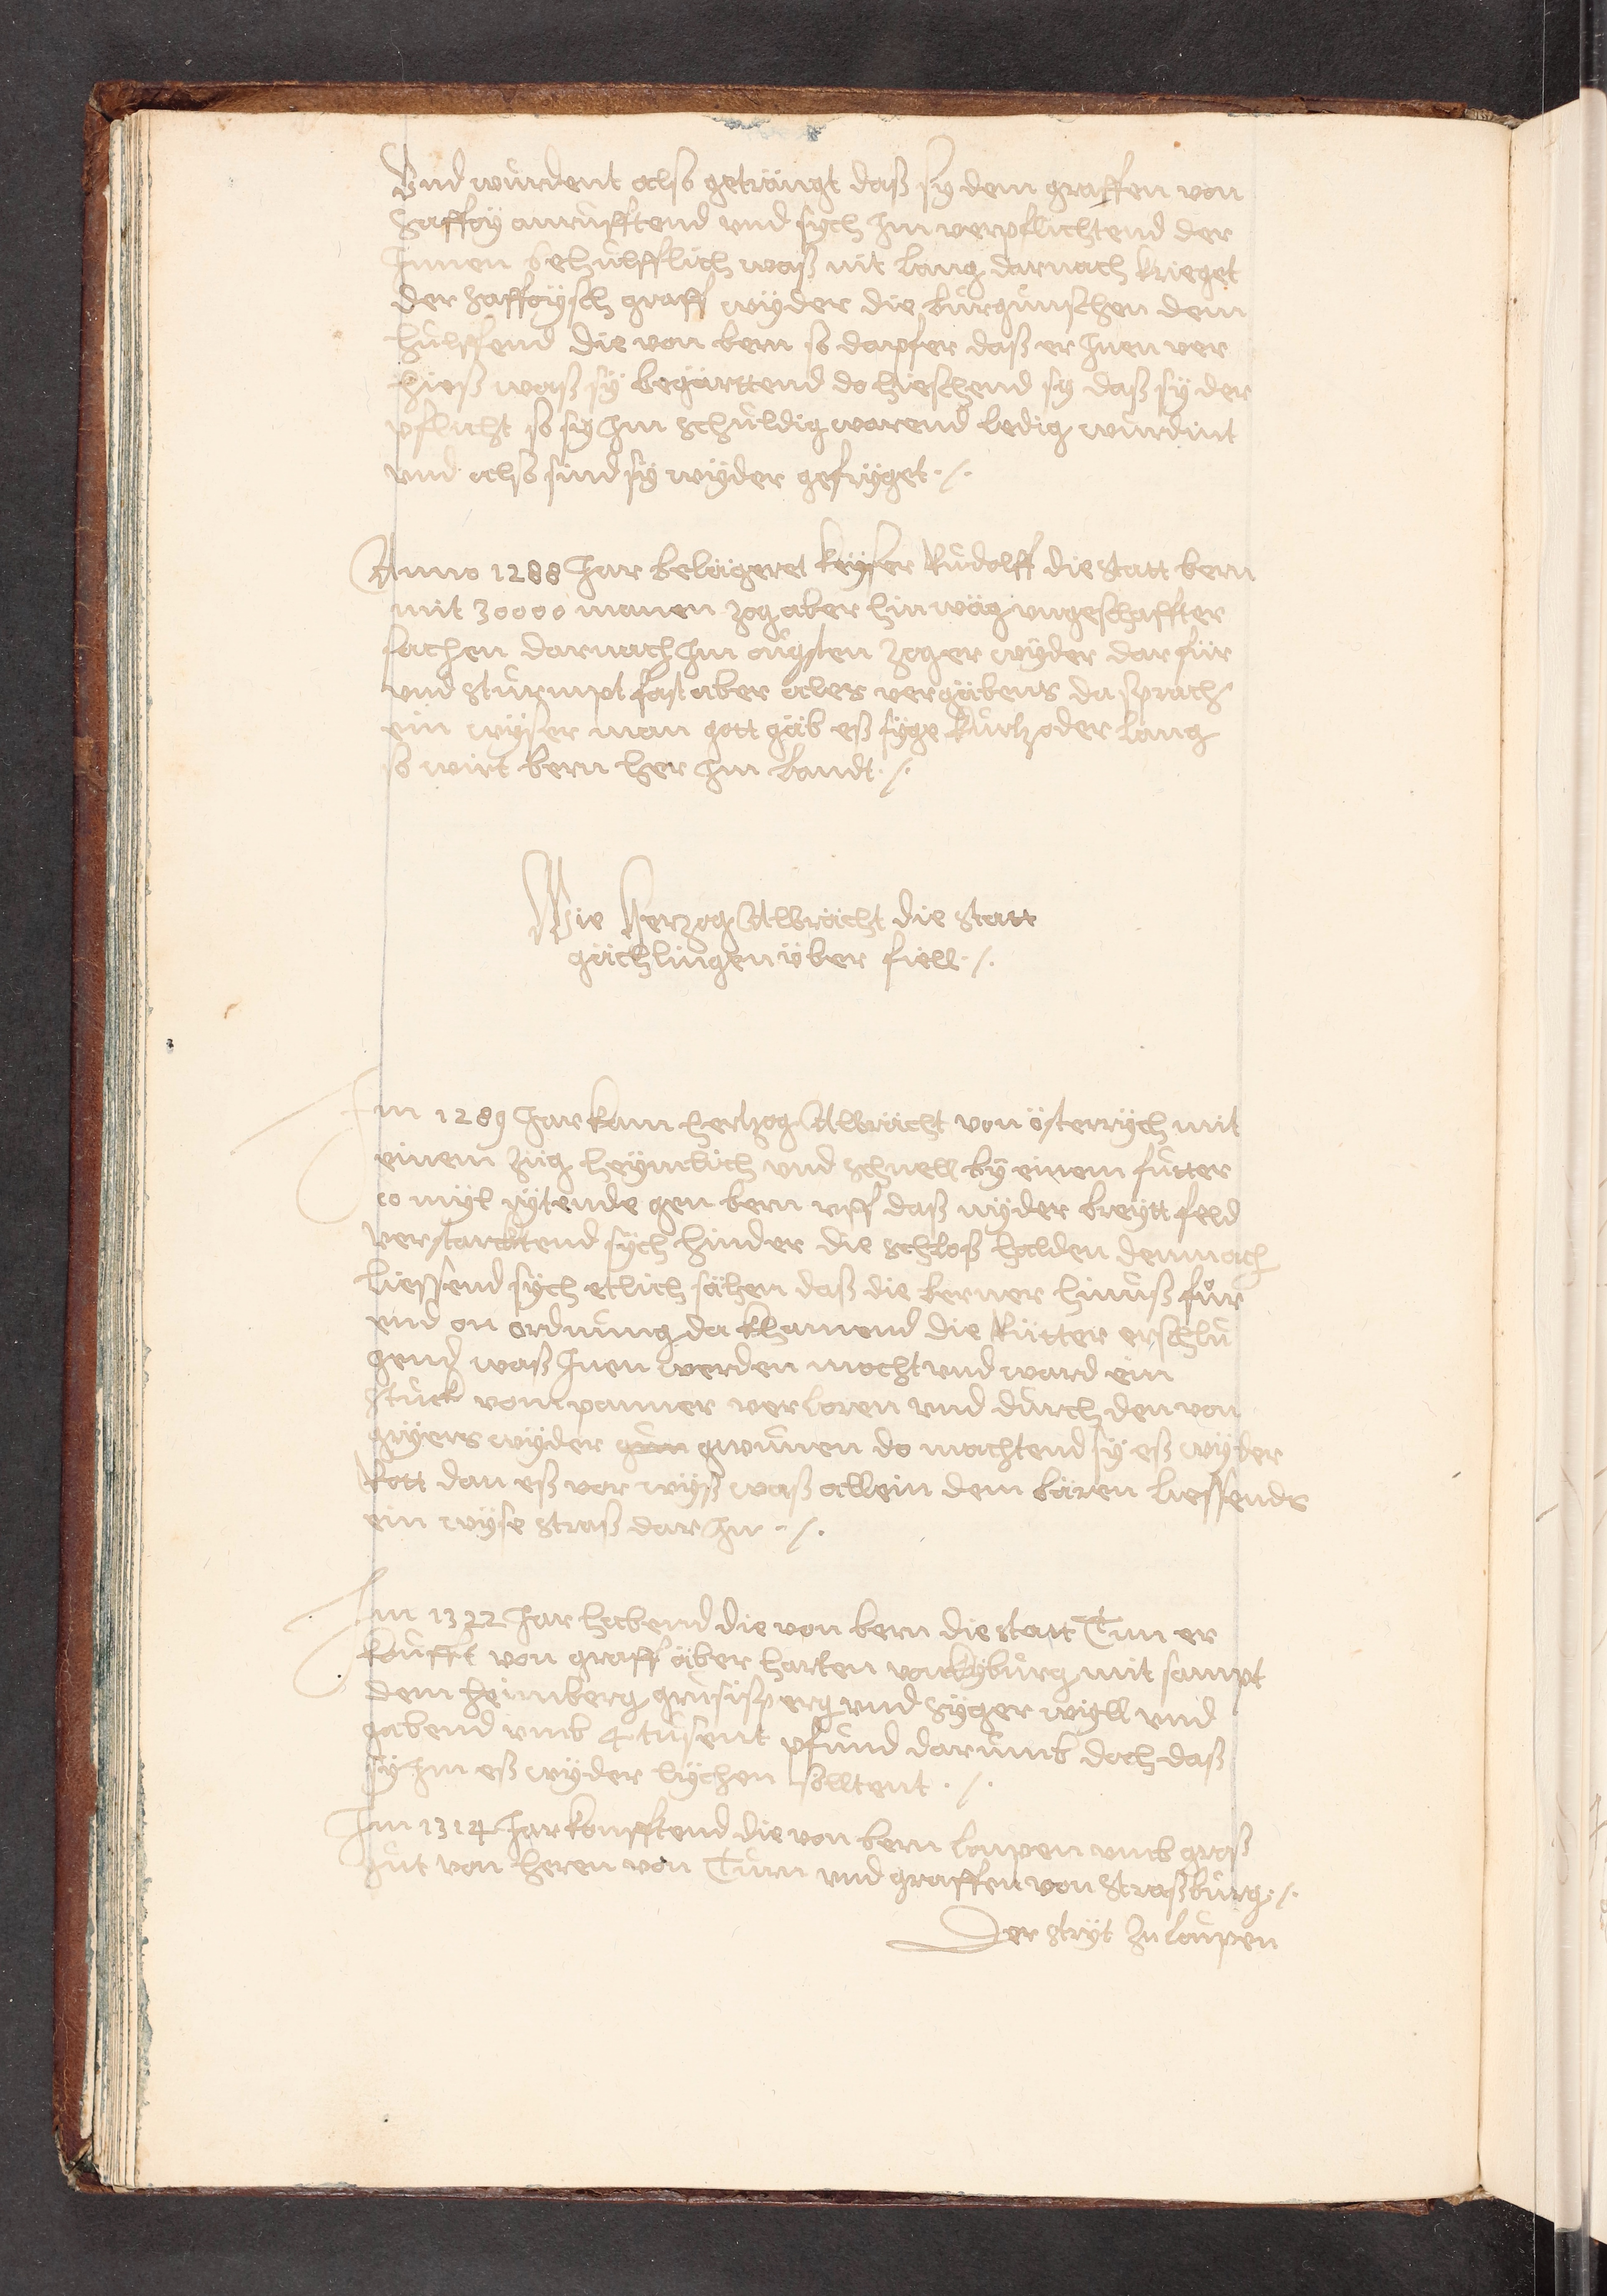 Vnd wurdent also geträngt daß sy dem graffen von
Saffoÿ anrufftend vnd sych Im verpflichtend der
Innen behulfflich waß nit lang darnach krieget
der saffoÿsch graff wÿder die burgunschen dem
hulffend die von bern so dapfer daß er Inen ver
hieß waß sÿ begärttend do hieschend sy daß sÿ der
pflicht so sÿ Im schuldig warend ledig wurdint
vnd also sind sÿ wÿder gefrÿget ·/.
Anno 1288 Jar belägeret keÿser Rudolff die statt bern
mit 30000 manen zog aber hin wäg vngeschaffter
sachen darnach Im augsten zog er wÿder dar für
vnd sturmpt fast aber alles vergäbens da sprach
ein wÿser man gott gäb eß sÿge kurtz oder lang
so wirt bern her Im landt ·/.
Wie Herzog Albrächt die statt
gächlingen über fiell ·/.
Im 1289 Jar kam hertzog Albrächt von österrÿch mit
einem züg heÿmlich vnd schnell bÿ einem futter
10 mÿl rÿtende gen bern vff daß nÿder breÿtt feld
verstarcktend sÿch hinder die schloß halden demnach
liessend sÿch etlich sähen daß die berner hinuß fůr
vnd on ordnung da khamend die Rütter erschlu
gend waß Inen werden mocht vnd ward ein
stuck vom panner verloren vnd durch den von
grÿers wÿder gwunen do machtend sÿ eß wÿder
Rott dan eß vor wÿß waß allein dem bären liessends
ein wÿse straß dar In ·/.
Im 1322 Jar habend die von bern die statt Tun er
koufft von graff äber harten von kÿburg mit sampt
dem heimberg grusisperg vnd sÿger wÿll vnd
gabend vmb 4 tusent pfund darumb doch daß
sÿ Im eß wÿder lÿchen solltent ·/.
Im 1314 Jar koufftend die von bern loupen vmb groß
gut von heren von Turn vnd graffen von straßburg ·/.
Der strÿt zu loupen